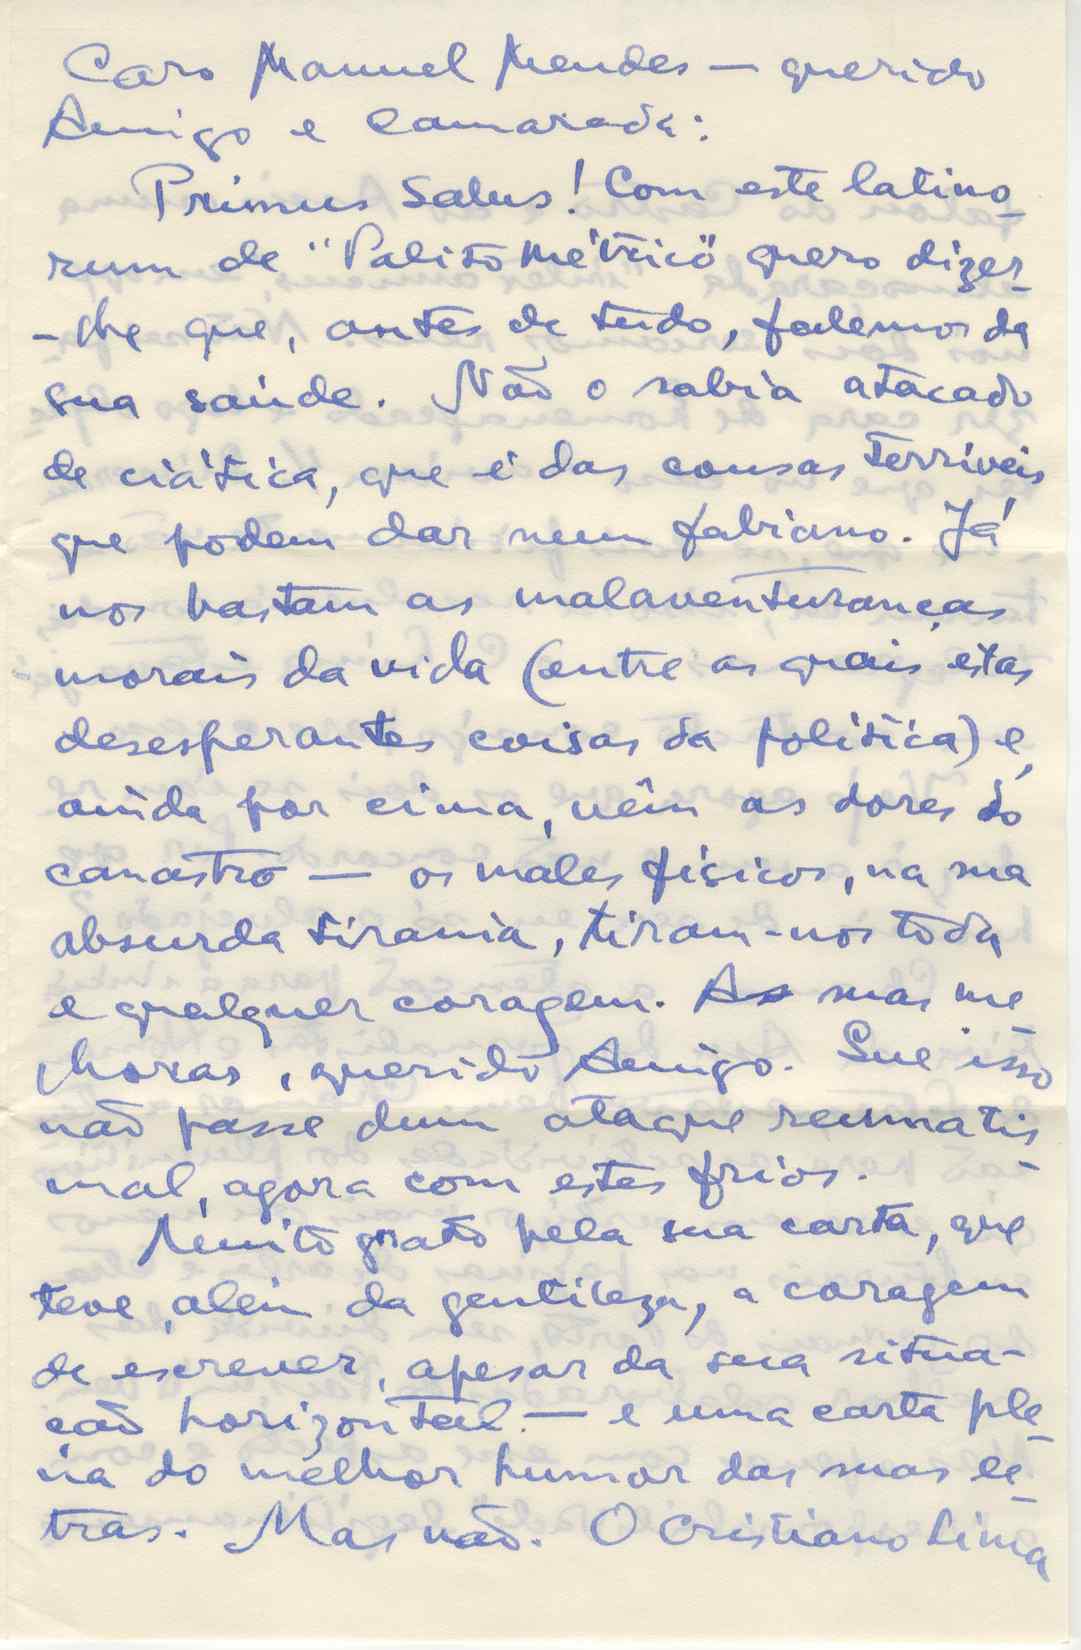 Caro Manuel Mendes — querido
Amigo e Camarada:
Primus Salus! Com este latino-
rum de "Palito Métrico" quero dizer-
-lhe que, antes de tudo, falemos da
sua saúde. Não o sabia atacado
de ciática, que é das cousas terríveis
que podem dar num fabiano. Já
nos bastam as malaventuranças
morais da vida (entre as quais, estas
desesperantes coisas da política) e,
ainda por cima, vêm as dores do
canastro — os males físicos, na sua
absurda tirania, tiram-nos toda
e qualquer coragem. As suas me-
lhoras, querido Amigo. Que isso
não passe dum ataque reumatis-
mal, agora com estes frios.
Muito grato pela sua carta, que
teve, além da gentileza, a coragem
de escrever, apesar da sua situa-
ção horizontal — e uma carta ple-
na do melhor humor das suas le-
tras. Mas não. O Cristiano Lima